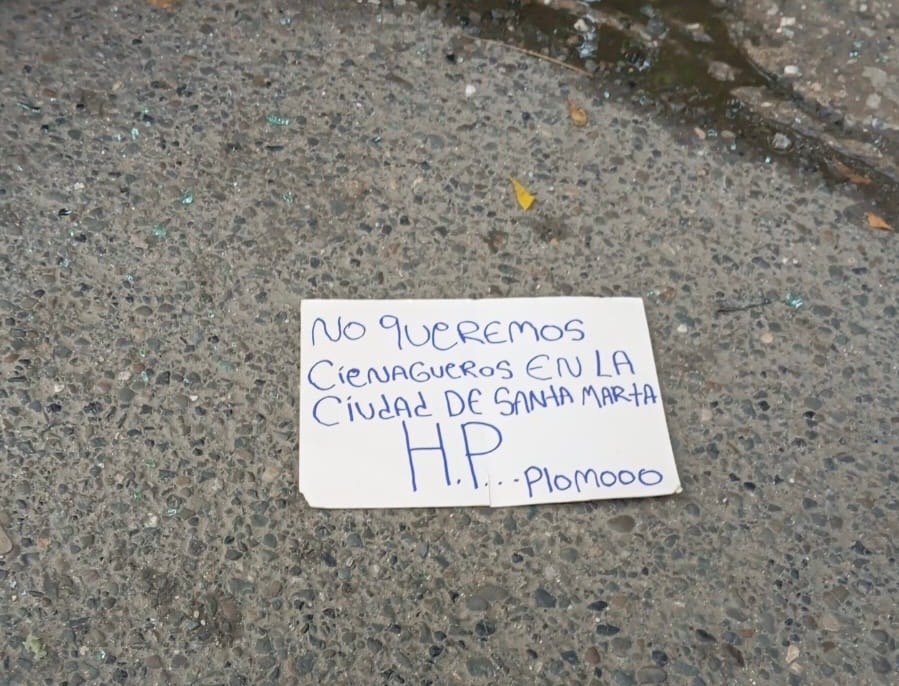 No queremos
CieNAGUEROS EN LA
Ciudad DE SANtA MARtA
H.P... Plomooo